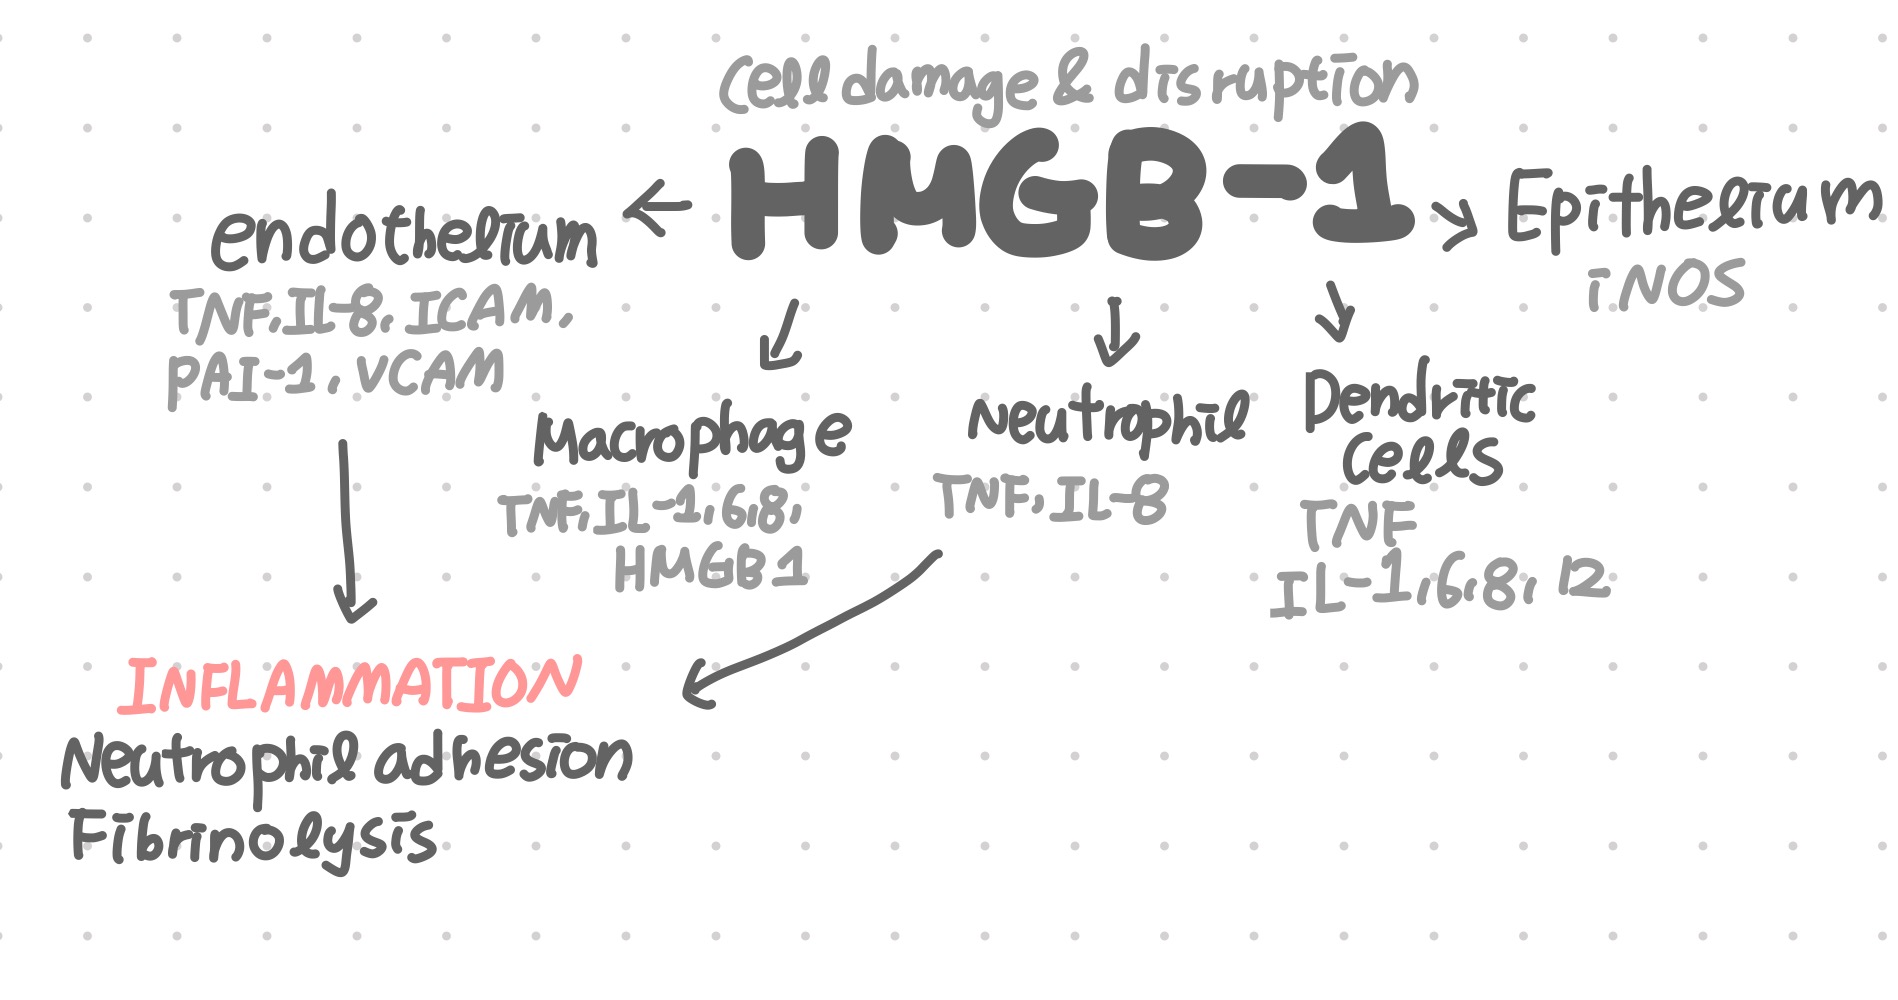 Cell damage & disruption
HMGB-1
endothelium
TNF, IL-8, ICAM,
PAI-1, VCAM
Epithelium
iNOS
Macrophage
TNF, IL-1,6,8,
HMGB1
Neutrophil
TNF, IL-8
Dendritic
Cells
TNF
IL-1,6,8, 12
INFLAMMATION
Neutrophil adhesion
Fibrinolysis